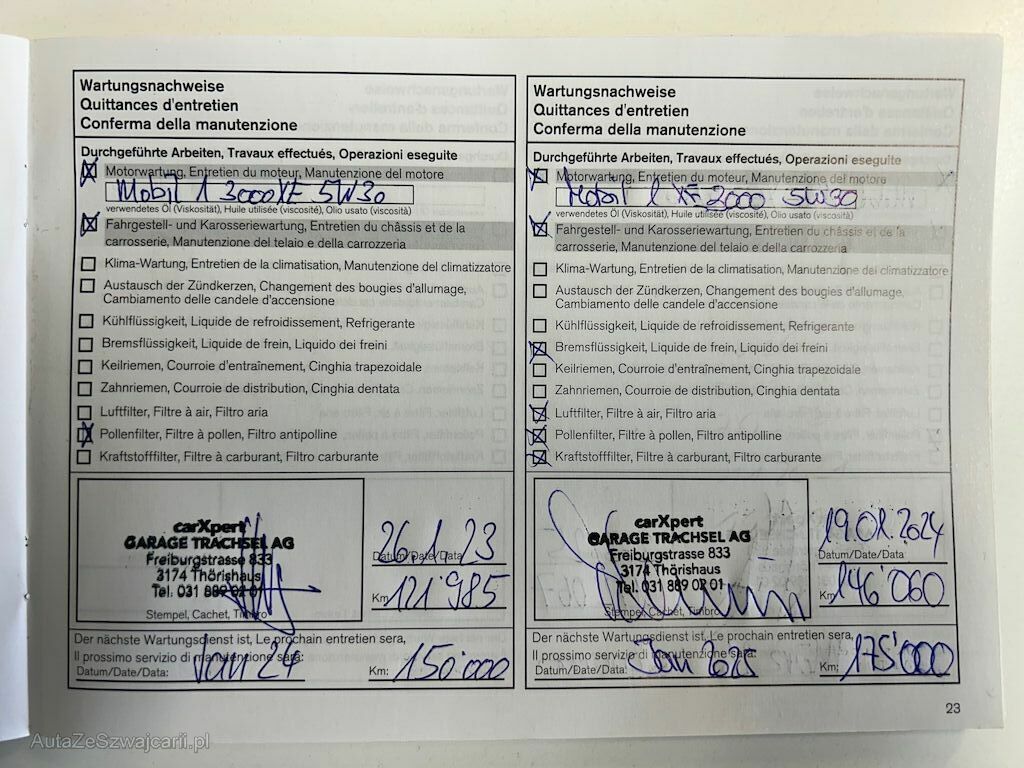 Wartungsnachweise
Quittances d'entretien
Conferma della manutenzione
Durchgeführte Arbeiten, Travaux effectués, Operazioni eseguite
Motorwartung, Entretien du moteur, Manutenzione del motore
Mobil 1 3000 XE 5W30
verwendetes Öl (Viskosität), Huile utilisée (viscosité), Olio usato (viscosità)
Fahrgestell- und Karosseriewartung, Entretien du châssis et de la
carrosserie, Manutenzione del telaio e della carrozzeria
Klima-Wartung, Entretien de la climatisation, Manutenzione del climatizzatore
Austausch der Zündkerzen, Changement des bougies d'allumage,
Cambiamento delle candele d'accensione
Kühlflüssigkeit, Liquide de refroidissement, Refrigerante
Bremsflüssigkeit, Liquide de frein, Liquido dei freini
Keilriemen, Courroie d'entraînement, Cinghia trapezoidale
Zahnriemen, Courroie de distribution, Cinghia dentata
Luftfilter, Filtre à air, Filtro aria
Pollenfilter, Filtre à pollen, Filtro antipolline
Kraftstofffilter, Filtre à carburant, Filtro carburante
carXpert
GARAGE TRACHSEL AG
Freiburgstrasse 833
3174 Thörishaus
Tel. 031 889 02 01
Stempel, Cachet, Timbro
26.1.23
Datum/Date/Data
Km 121'985
Der nächste Wartungsdienst ist, Le prochain entretien sera,
Il prossimo servizio di manutenzione sarà:
Datum/Date/Data: Jan 24 Km: 150'000
Wartungsnachweise
Quittances d'entretien
Conferma della manutenzione
Durchgeführte Arbeiten, Travaux effectués, Operazioni eseguite
Motorwartung, Entretien du moteur, Manutenzione del motore
Mobil 1 XE 2000 5W30
verwendetes Öl (Viskosität), Huile utilisée (viscosité), Olio usato (viscosità)
Fahrgestell- und Karosseriewartung, Entretien du châssis et de la
carrosserie, Manutenzione del telaio e della carrozzeria
Klima-Wartung, Entretien de la climatisation, Manutenzione del climatizzatore
Austausch der Zündkerzen, Changement des bougies d'allumage,
Cambiamento delle candele d'accensione
Kühlflüssigkeit, Liquide de refroidissement, Refrigerante
Bremsflüssigkeit, Liquide de frein, Liquido dei freini
Keilriemen, Courroie d'entraînement, Cinghia trapezoidale
Zahnriemen, Courroie de distribution, Cinghia dentata
Luftfilter, Filtre à air, Filtro aria
Pollenfilter, Filtre à pollen, Filtro antipolline
Kraftstofffilter, Filtre à carburant, Filtro carburante
carXpert
GARAGE TRACHSEL AG
Freiburgstrasse 833
3174 Thörishaus
Tel. 031 889 02 01
Stempel, Cachet, Timbro
19.01.2024
Datum/Date/Data
Km 146'060
Der nächste Wartungsdienst ist, Le prochain entretien sera,
Il prossimo servizio di manutenzione sarà:
Datum/Date/Data: Jan 2025 Km: 175'000
23
AutaZeSzwajcarii.pl